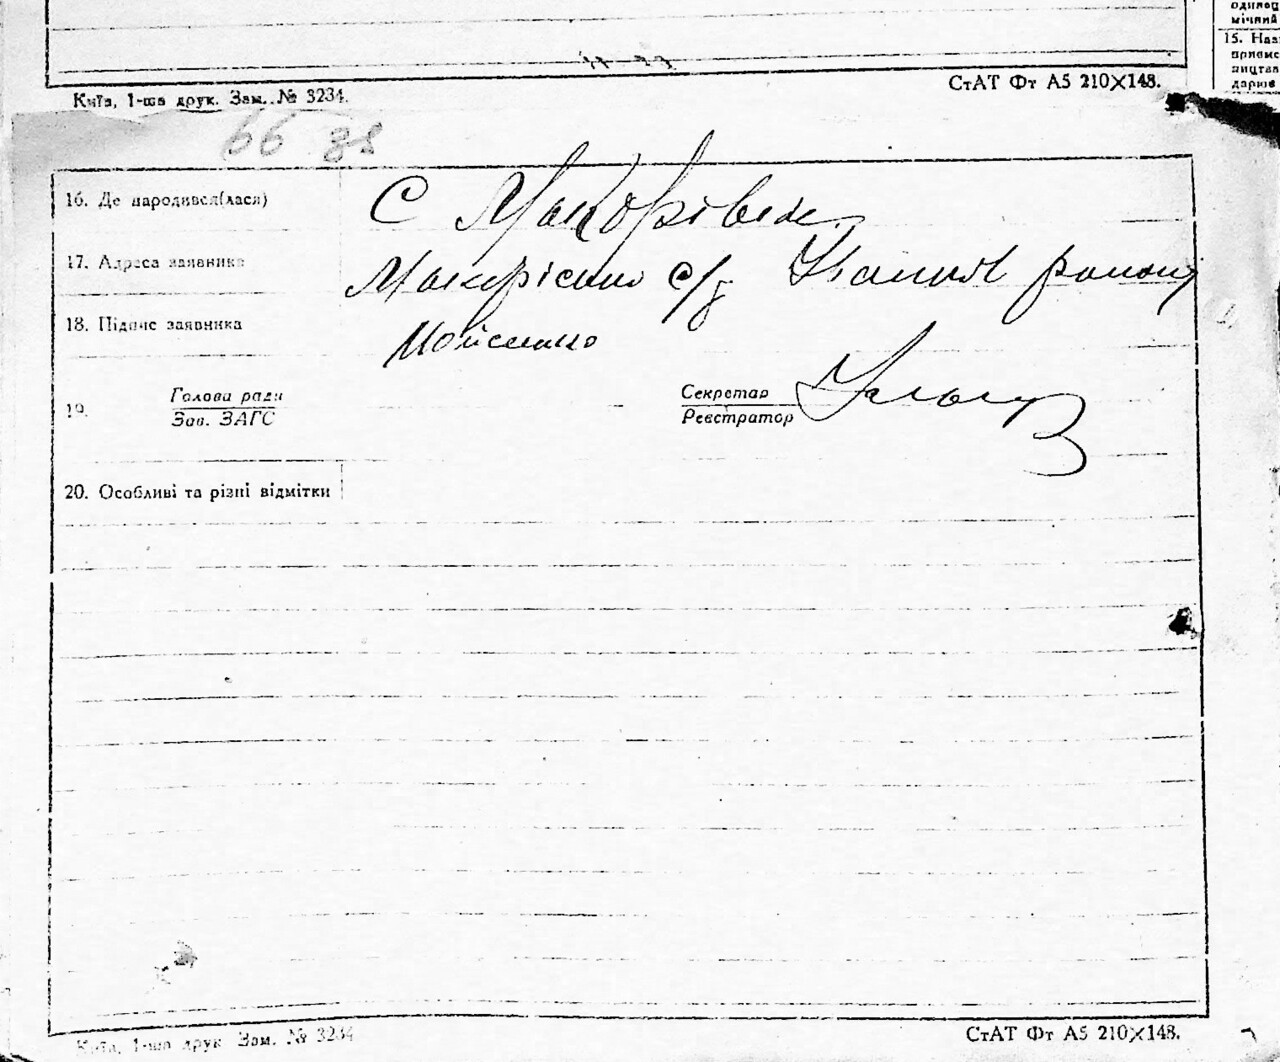 мічний
15. Наз
Київ, 1-ша друк. Зам. № 3234.
СтАТ Фт А5 210×148.
66 зв
16. Де народився(лася)
С Макорівка
17. Адреса заявника
с/р району
18. Підпис заявника
Мойсенко
19. Голова ради
Зав. ЗАГС
Секретар
Реєстратор
20. Особливі та різні відмітки
Київ, 1-ша друк Зам. № 3234
СтАТ Фт А5 210×148.